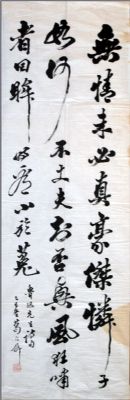 無情未必真豪傑憐子
如何不丈夫知否興風狂嘯
者回眸時看小於菟
魯迅先生詩